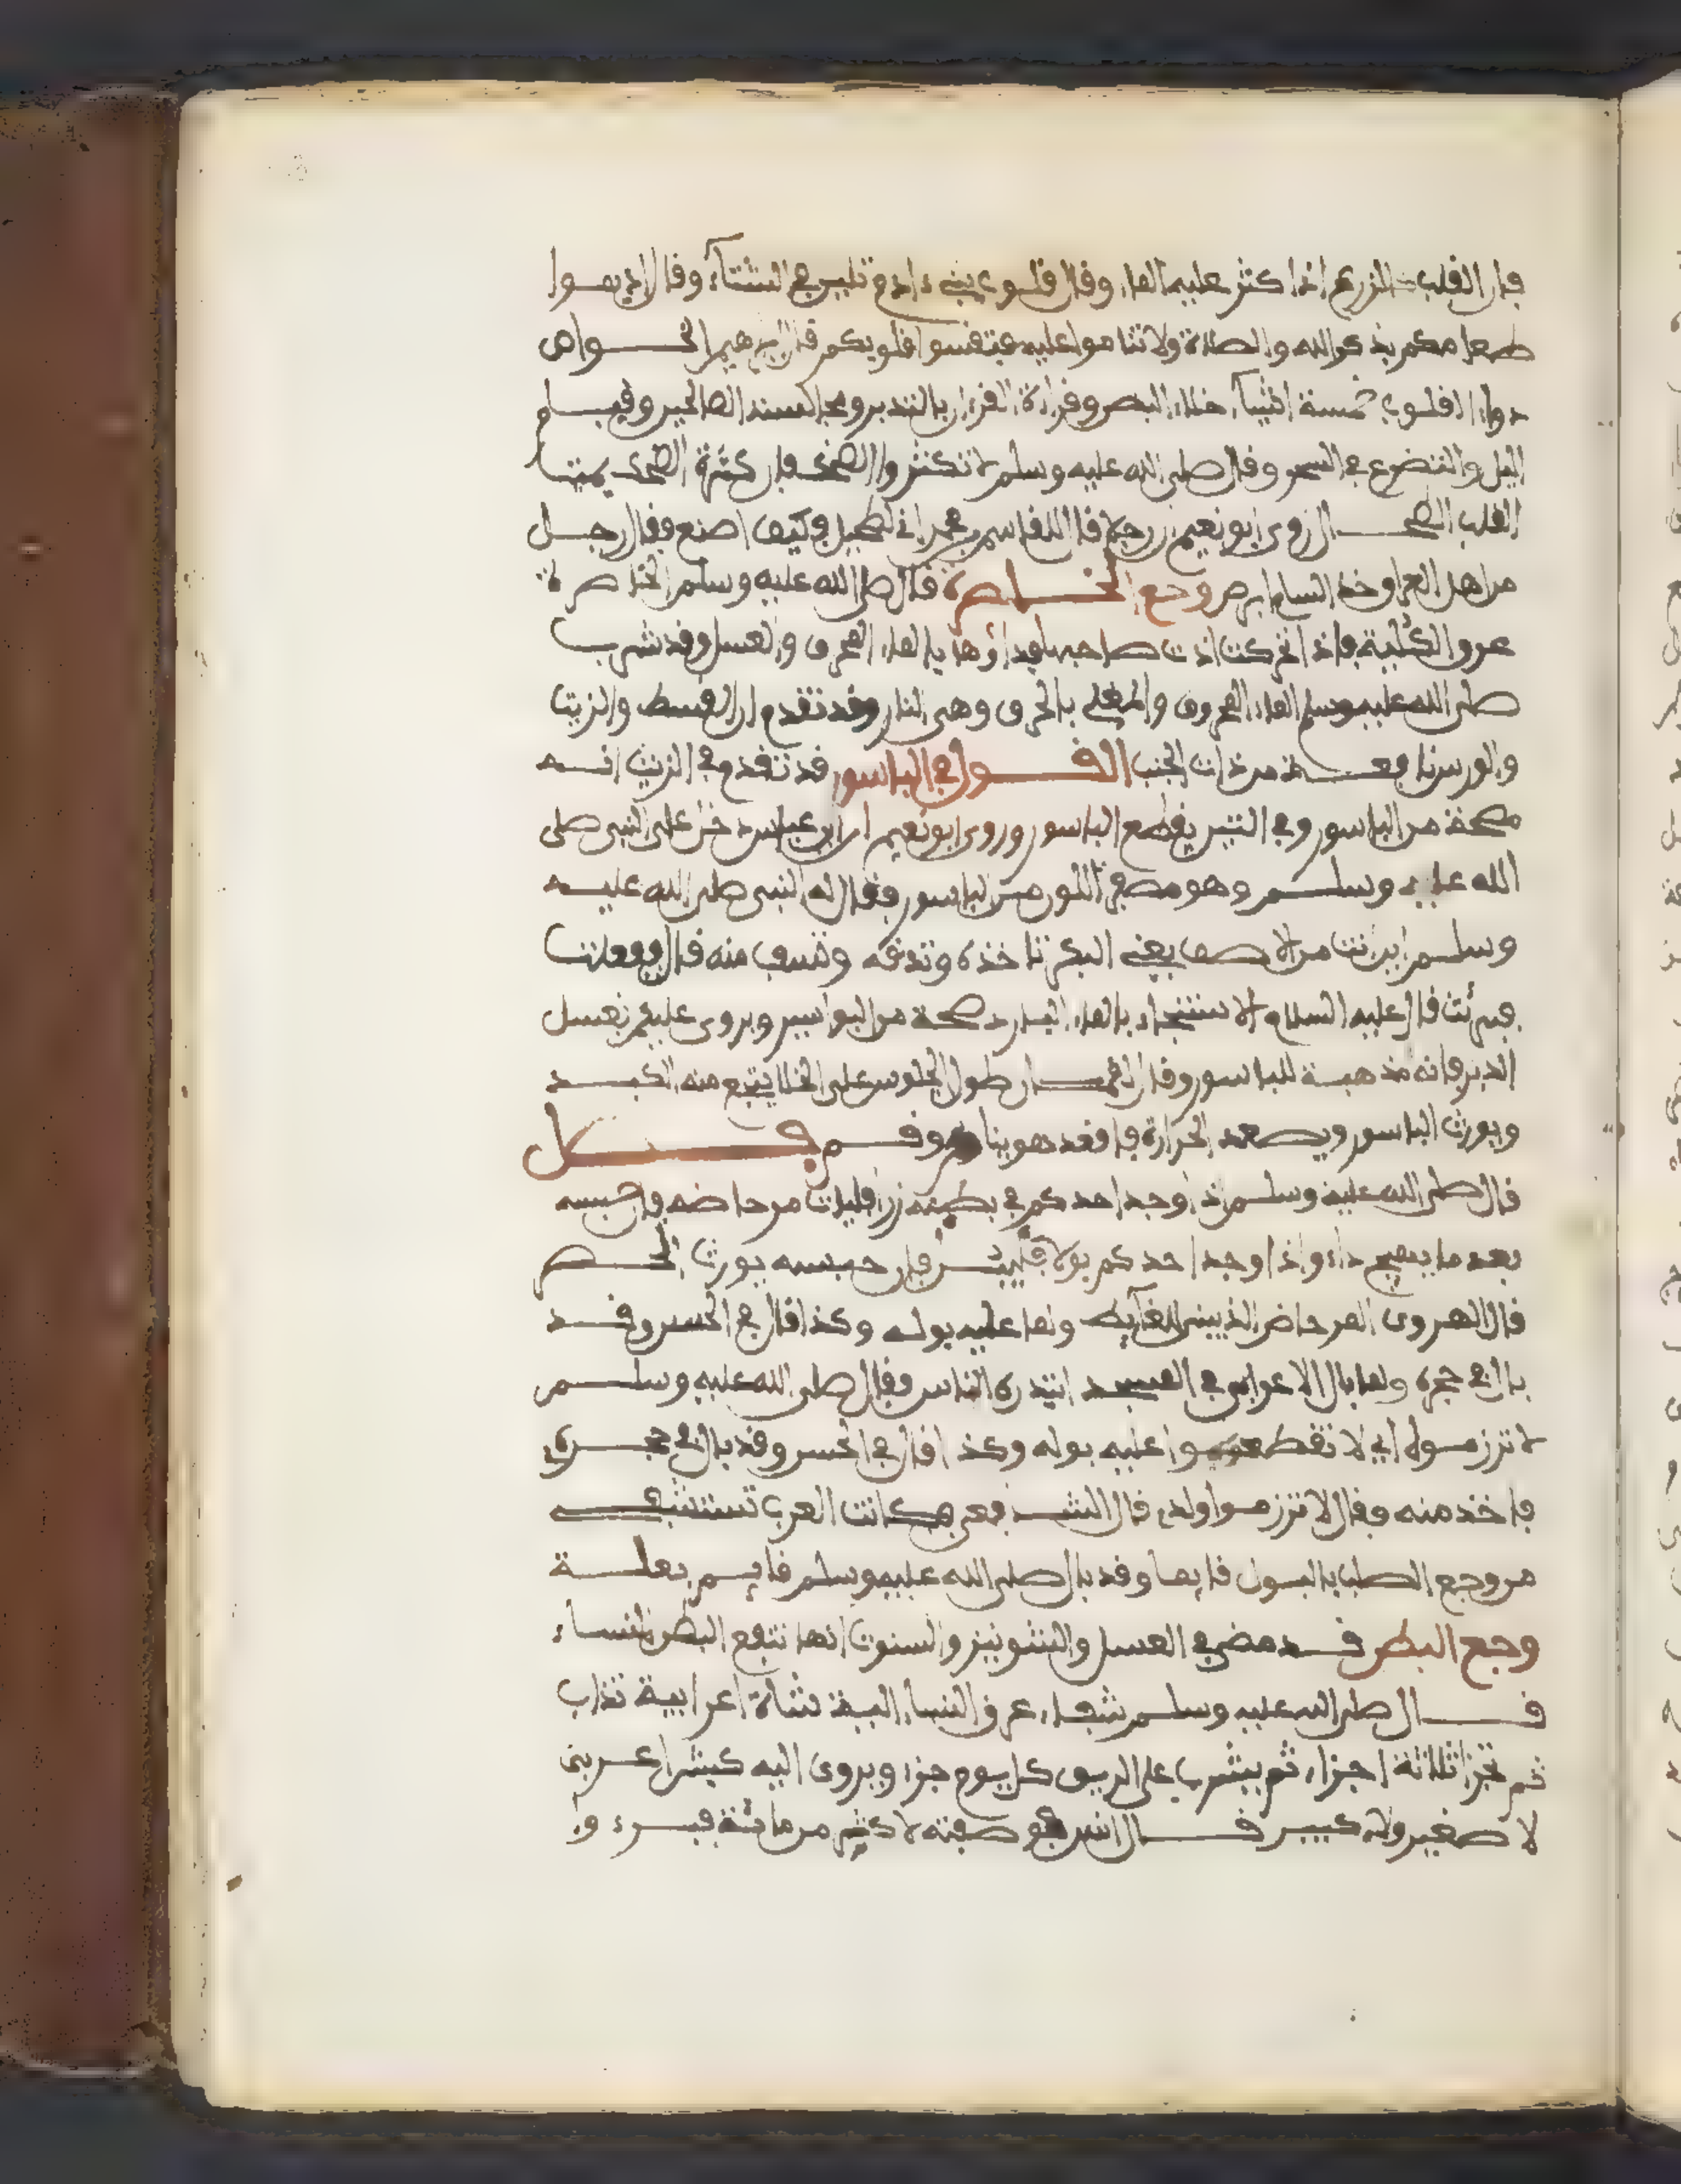 فإن القلب كالزرع إذا كثر عليه الماء وقال قلوب بني ءادم تلين في الشتاء وقال اذيبوا
طعامكم بذكر الله والصلاة ولا تناموا عليه فتقسوا قلوبكم قال ابرهيم الخواص
دواء القلوب خمسة اشياء خلاء البطن وقراءة القرءان بالتدبر ومجالسة الصالحين وقيام
اليل والتضرع في السحر وقال صلى الله عليه وسلم لا تكثروا الضحك فإن كثرة الضحك يميت
القلب الطحال روى ابو نعيم ان رجلا قال للقاسم بن محمد اني لطحيل فكيف اصنع فقال رجل
من اهل العراق خذ السام ابرص وجع الخاصرة قال صلى الله عليه وسلم الخاصرة
عرق الكلية فإذا تحركت اذت صاحبها فدواؤها بالماء المحرق والعسل وقد شرب
صلى الله عليه وسلم الماء المحروق والمغلى بالحرق وهي النار وقد تقدم ان القسط والزيت
والورس نافعة من ذات الجنب القول في الباسور قد تقدم في الزيت انه
مصحة من الباسور وفي التين يقطع الباسور وروى ابو نعيم ان ابن عباس دخل على النبي صلى
الله عليه وسلم وهو مصفر اللون من الباسور فقال له النبي صلى الله عليه
وسلم اين انت من الاصف يعني الكبر تاخذه وتدقه وتسف منه قال ففعلت
فبرئت قال عليه السلام الاستنجاء بالماء البارد صحة من البواسير ويروى عليكم بغسل
الدبر فانه مذهبة للباسور وقال لقمان طول الجلوس على الخلا يتجع منه الكبد
ويورث الباسور ويصعد الحرارة فاقعد هوينا وقم فصل
قال صلى الله عليه وسلم اذا وجد احدكم في بطنه رزا فليات مرحاضه فان حبسه
بعد ما يهيج داء واذا وجد احدكم بولا فليبتدر فإن حبسه يورث الحصر
قال الهروي المرحاض الذي يبنى للغايط ولما عليه بوله وكذا قال في الحسن وقد
بال في حجره ولما بال الاعرابي في المسجد ابتدره الناس فقال صلى الله عليه وسلم
لا تزرموه اي لا تقطعوا عليه بوله وكذا قال في الحسن وقد بال في حجره
فاخذ منه فقال لا تزرموا ولدي قال الشافعي كانت العرب تستشفي
من وجع الصلب بالبول قايما وقد بال صلى الله عليه وسلم قايم لعلة
وجع البطن قد مضى في العسل والشونيز والسنوت انها تنفع البطن النساء
قال صلى الله عليه وسلم شفاء عرق النساء الية شاة اعرابية تذاب
ثم تجزا ثلاثة اجزاء ثم يشرب على الريق كل يوم جزء ويروى الية كبش عربي
لا صغير ولا كبير قال انس فوصفته لاكثر من مائة فبرء و